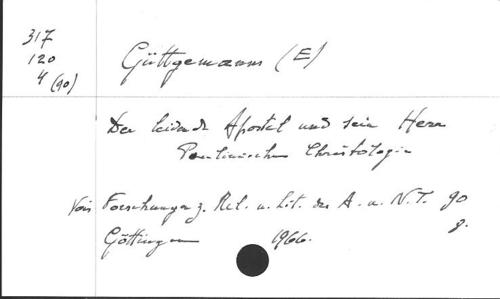 317
120
4 (90)
Güttgemanns (E)
Der leidende Apostel und sein Herr
Paulinische Christologie
Voir Forschungen z. Rel. u. Lit. des A. u. N.T. 90
Göttingen 1966.